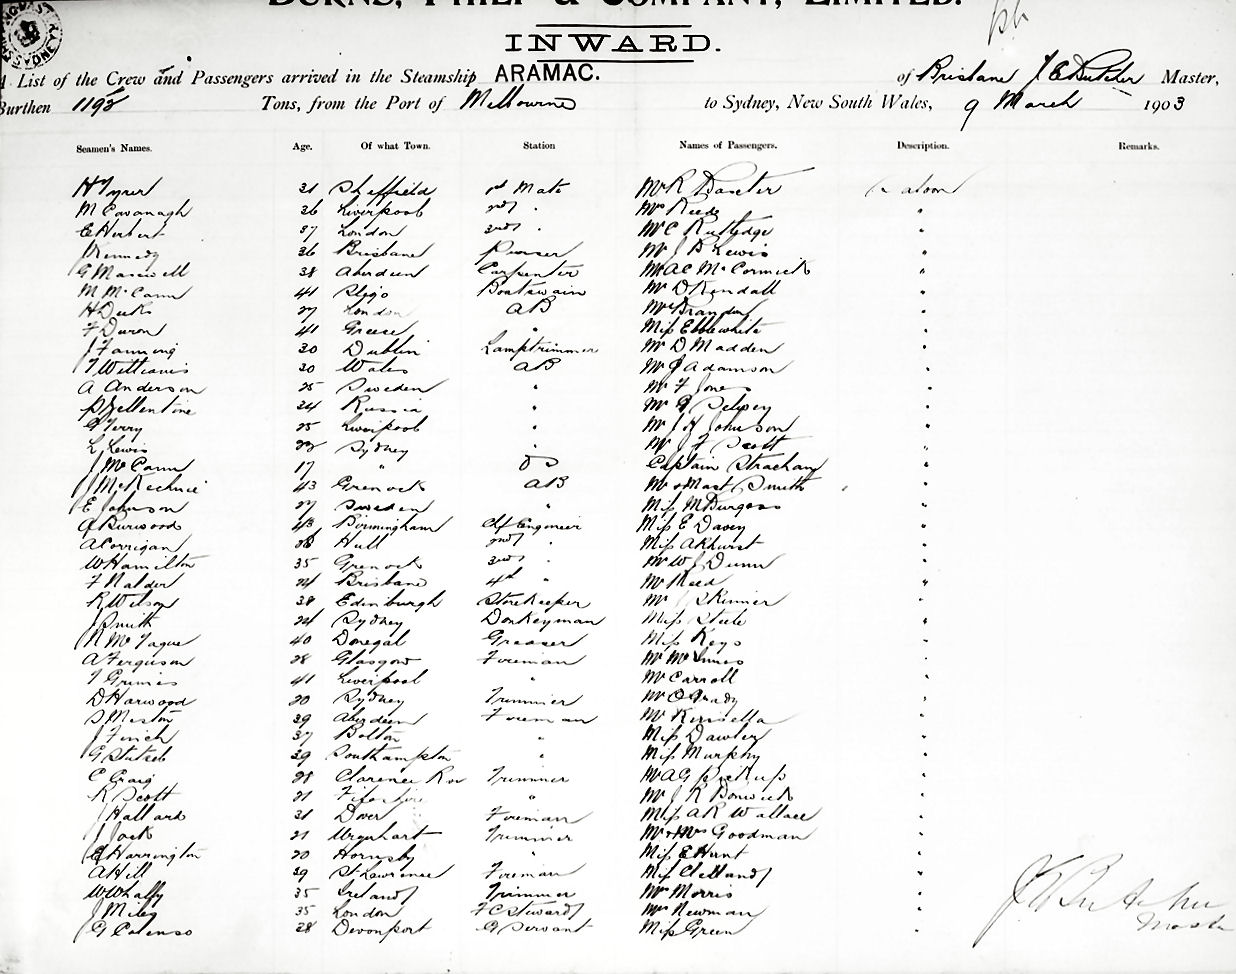 BURNS, PHILP & COMPANY, LIMITED.
INWARD.
A List of the Crew and Passengers arrived in the Steamship ARAMAC. of Brisbane J E Butcher Master,
Burthen 1193 Tons, from the Port of Melbourne to Sydney, New South Wales, 9 March 1903
Seamen's Names. Age. Of what Town. Station Names of Passengers. Description. Remarks.
31 Sheffield 1st Mate Mr R Saloon
M Cavanagh 36 Liverpool 2nd " Mr Reeds "
C Herbert 37 London 3rd " Mr C Rutledge "
Kennedy 36 Brisbane Purser Mr J B Lewis "
G Maxwell 38 Aberdeen Carpenter A C McCormick "
M McCann 41 Sligo Boatswain Mr D Kendall "
H 27 London AB "
F Duron 41 Greece " Miss Ebblewhite "
J Fanning 30 Dublin Lamptrimmer Mr D Madden "
T Williams 30 Wales AB Mr J Adamson "
A Anderson 25 Sweden " Mr F Jones "
24 Russia " Mr "
G Terry 25 Liverpool " Mr J H Johnson "
L Lewis Sydney " Mr J F Scott "
J McCann 17 " OS Captain Strachan "
J McKechnie 43 Grenock AB Mr & Mast Smith "
E Johnson 27 Sweden " Miss M Burgess "
Burwood 43 Birmingham Chf Engineer Miss E Davey "
A Corrigan Hull 2nd " Miss Akhurst "
W Hamilton 35 Grenock 3rd " Mr W J Dunn "
F Nalder 24 Brisbane 4th " Mr Reed "
R Wilson 38 Edinburgh Storekeeper Mr J Skinner "
J Smith 24 Sydney Donkeyman Miss Steele "
R McTague 40 Donegal Greaser Miss Keys "
A Ferguson 28 Glasgow Fireman Mr McInnes "
T Grimes 41 Liverpool " Mr Carroll "
D Harwood 20 Sydney Trimmer Mr O'Grady "
S Meston 39 Aberdeen Fireman Mr Kinsella "
J Finch 37 Bolton " Miss Dawley "
G 39 Southampton " Miss Murphy "
C Craig 28 Clarence Riv Trimmer Mr A G Pickup "
R Scott 21 Fifeshire " Mr J R Bonwick "
J Hallard 31 Dover Fireman Miss A R Wallace "
J Jack 21 Urquhart Trimmer Mr & Mrs Goodman "
E Harrington 20 Hornsby " Miss E Hunt "
A Hill 39 St Lawrence Fireman Miss Clelland "
W Whalty 35 Ireland Trimmer Mr Morris "
J Miley 35 London F C Steward Mr Newman "
G Colenso 28 Devonport G Servant Miss Green "
J E Butcher
Master